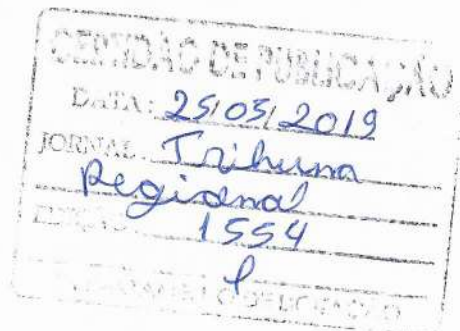 CERTIDÃO DE PUBLICAÇÃO
DATA: 25/05/2019
JORNAL: Tribuna
Regional
1554